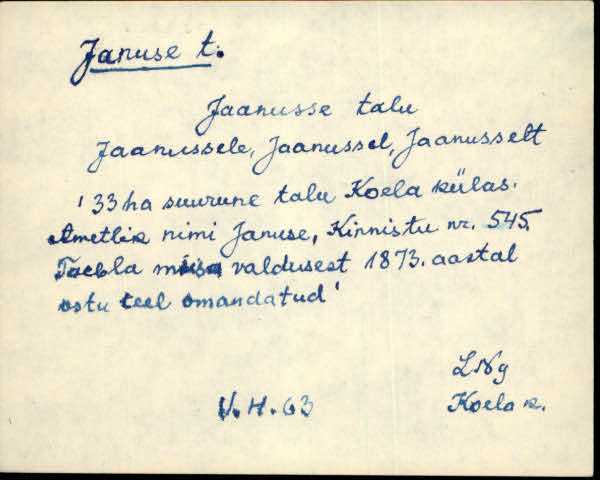 Januse t.
Jaanusse talu
Jaanussele, Jaanussel, Jaanusselt
' 33 ha suurune talu Koela külas.
Ametlik nimi Januse, Kinnistu nr. 545.
Taebla mõisa valdusest 1873. aastal
ostu teel omandatud '
LNg
V. H. 63
Koela k.